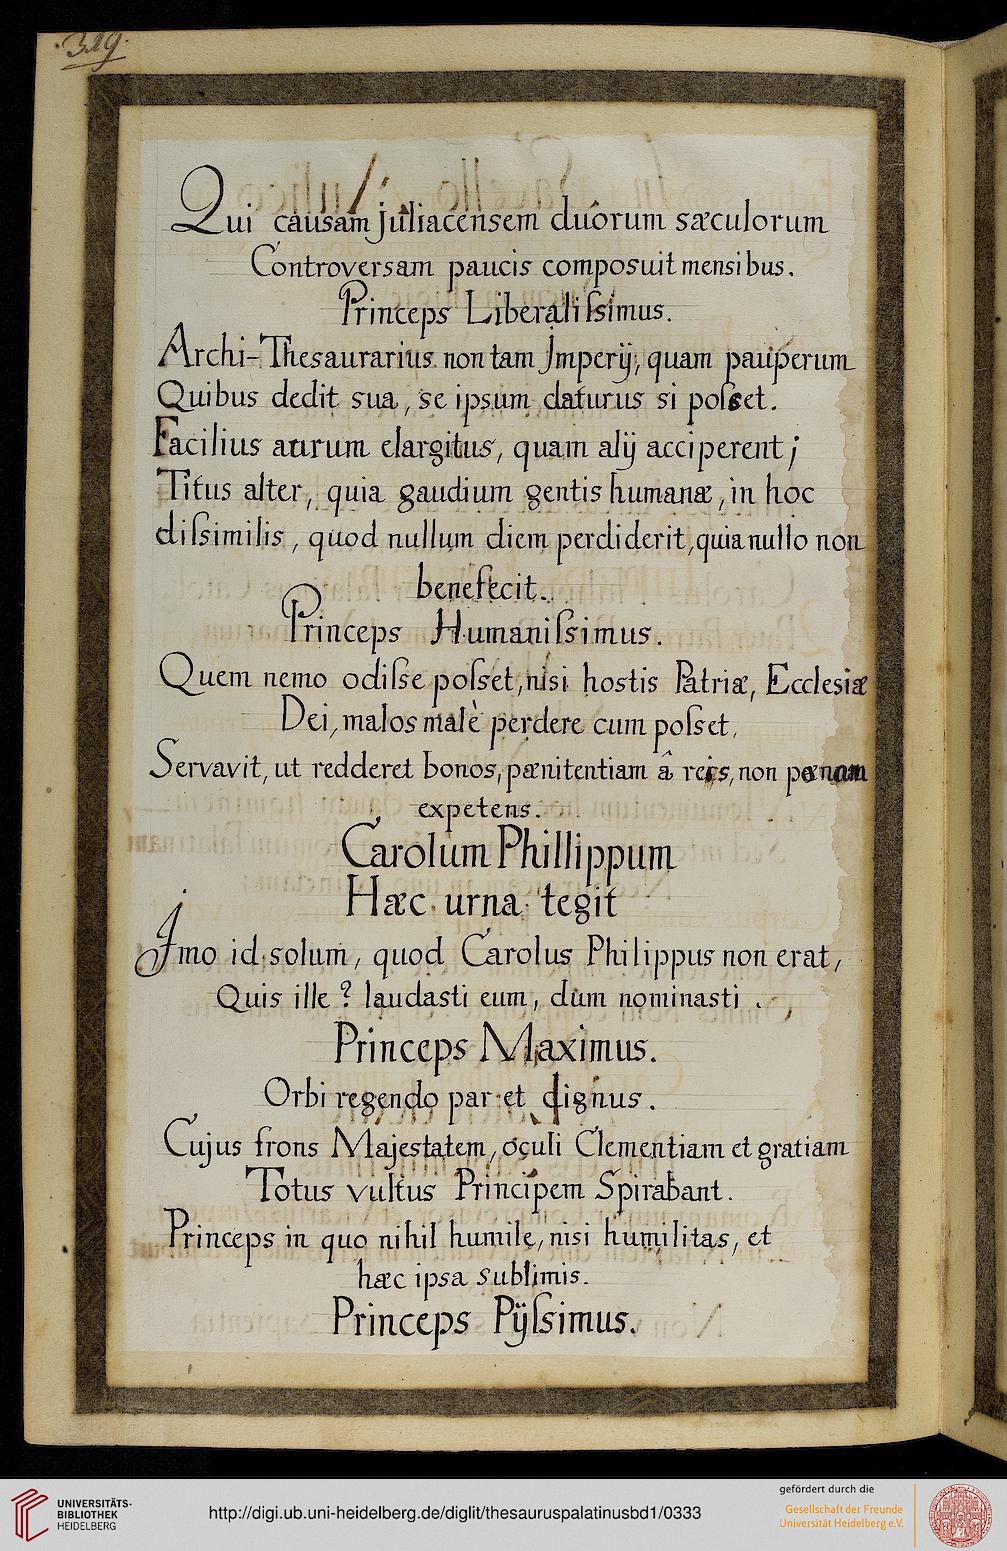 ·319·
Qui causam Juliacensem duorum sæculorum
Controversam paucis composuit mensibus.
Princeps Liberalissimus.
Archi-Thesaurarius non tam Jmperij, quam pauperum
Quibus dedit sua, se ipsum daturus si posset.
Facilius aurum elargitus, quam alij acciperent;
Titus alter, quia gaudium gentis humanæ, in hoc
dissimilis, quod nullum diem perdiderit, quia nullo non
benefecit.
Princeps Humanissimus.
Quem nemo odisse posset, nisi hostis Patriæ, Ecclesiæ
Dei, malos malè perdere cum posset,
Servavit, ut redderet bonos, pænitentiam â reis, non pænam
expetens.
Carolum Phillippum
Hæc urna tegit
Jmo id solum, quod Carolus Philippus non erat,
Quis ille? laudasti eum, dum nominasti.
Princeps Maximus.
Orbi regendo par et dignus.
Cujus frons Majestatem, oculi Clementiam et gratiam
Totus vultus Principem Spirabant.
Princeps in quo nihil humile, nisi humilitas, et
hæc ipsa sublimis.
Princeps Pijssimus.
UNIVERSITÄTS-
BIBLIOTHEK
HEIDELBERG
http://digi.ub.uni-heidelberg.de/diglit/thesauruspalatinusbd1/0333
gefördert durch die
Gesellschaft der Freunde
Universität Heidelberg e.V.